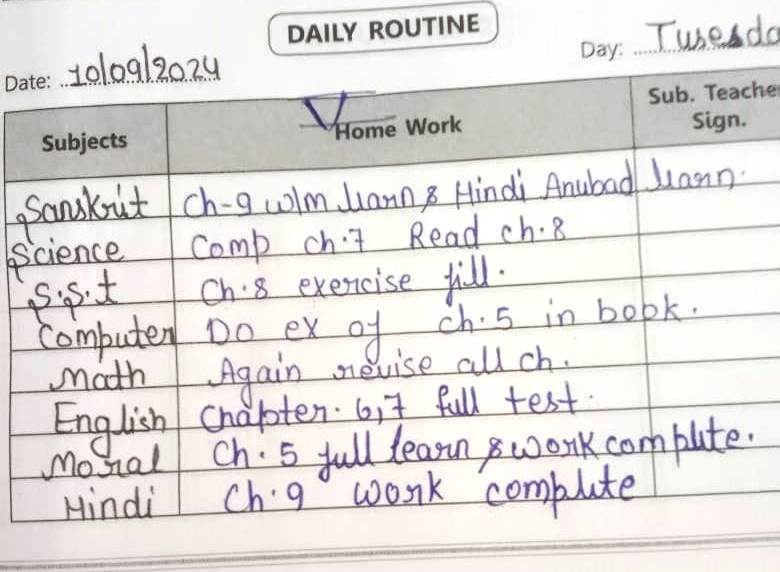 DAILY ROUTINE
Date: 10/09/2024 Day: Tusesda
Subjects Home Work Sub. Teacher Sign.
Sanskrit Ch-9 w/m learn & Hindi Anubad learn.
Science Comp ch.7 Read ch.8
S.S.t Ch.8 exercise fill.
Computer Do ex of ch.5 in book.
Math Again revise all ch.
English Chapter. 6,7 full test.
Moral Ch.5 full learn & work complete.
Hindi Ch.9 work complete